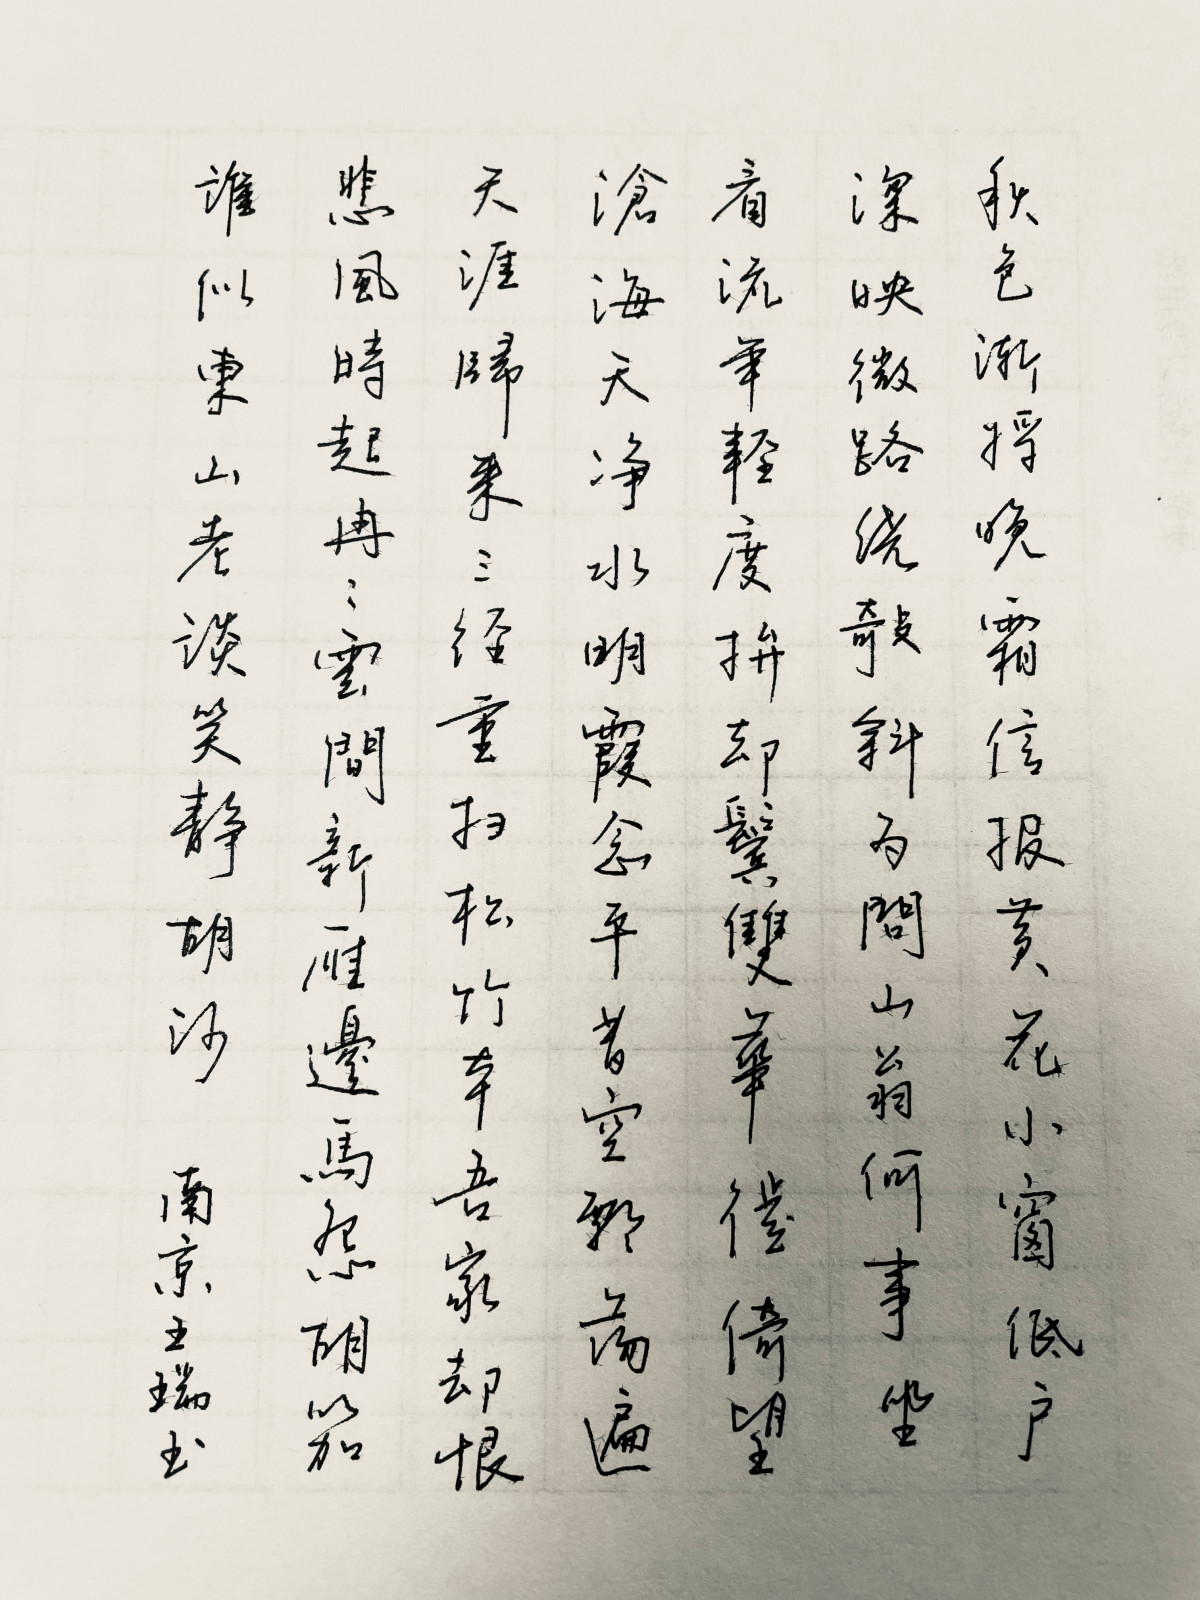 秋色渐将晚霜信报黄花小窗低户
深映微路绕欹斜为问山翁何事坐
看流年轻度拚却鬓雙華徙倚望
滄海天净水明霞念平昔空飘荡遍
天涯歸来三径重扫松竹本吾家却恨
悲風時起冉冉雲間新雁邊馬怨胡笳
誰似東山老談笑静胡沙 南京王瑞书